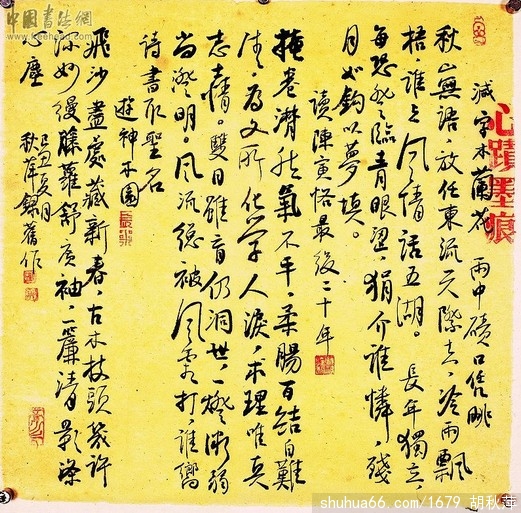 心蹟墨痕
減字木蘭花 雨中磧口凭眺
秋山無語，放任東流天際去，冷雨飄
梧，誰與風情話五湖。長年獨立，
每恐登臨青眼望，狷介誰憐，殘
月如鈎以夢填。
讀陳寅恪最後二十年
掩卷潸然氣不平，柔腸百結自難
生，爲文所化學人淚，求理唯真
志士情。雙目雖盲仍洞世，一燈漸弱
尚燃明。風流總被風霜打，誰嚮
詩書取聖名
遊神木園
飛沙盡處藏新春，古木枝頭幾許
深，妙縵藤蘿舒廣袖，一簾清影滌
心塵
己丑夏月
秋萍錄舊作
中国书法网
www.freehead.com
shuhua66.com/1679 胡秋萍